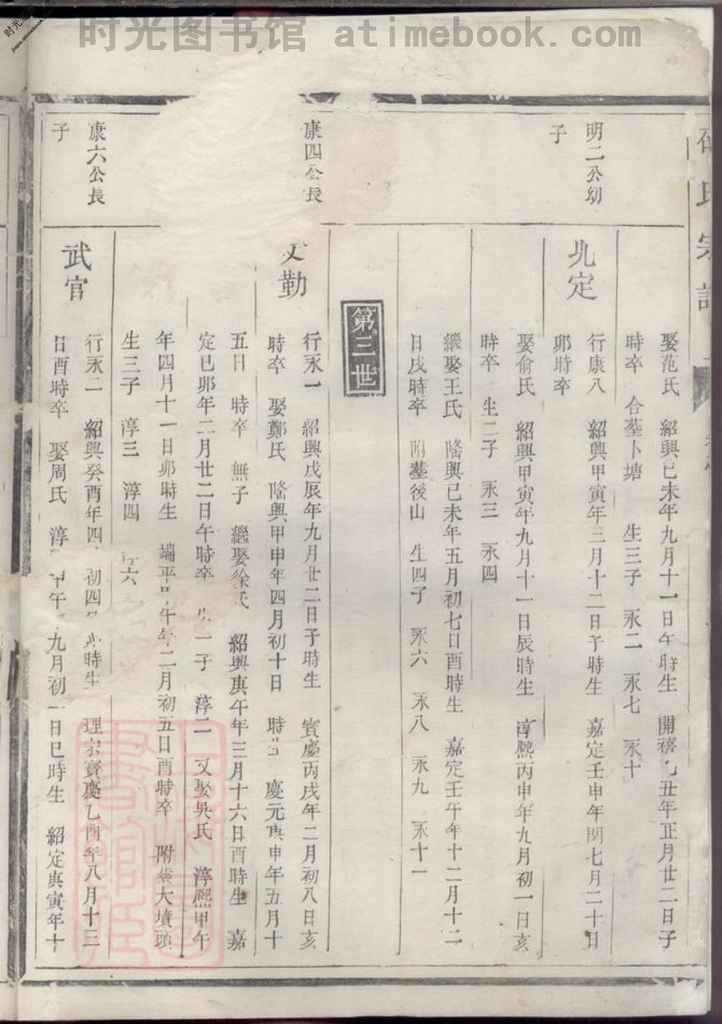 时光图书馆 atimebook.com
氏宗譜
娶范氏 紹興己未年九月十一日午時生 開禧乙丑年正月廿二日子
時卒 合墓卜塘 生三子 永二 永七 永十
明二公幼
子
北定
行康八 紹興甲寅年三月十二日子時生 嘉定壬申年閏七月二十日
卯時卒
娶俞氏 紹興甲寅年九月十一日辰時生 淳熙丙申年九月初一日亥
時卒 生二子 永三 永四
繼娶王氏 隆興己未年五月初七日酉時生 嘉定壬午年十二月十二
日戌時卒 附墓後山 生四子 永六 永八 永九 永十一
第三世
康四公長
文勤
行永一 紹興戊辰年九月廿二日子時生 寶慶丙戌年二月初八日亥
時卒 娶鄭氏 隆興甲申年四月初十日 時生 慶元庚申年五月十
五日 時卒 無子 繼娶徐氏 紹興庚午年三月十六日酉時生 嘉
定己卯年二月廿二日午時卒 生一子 淳二 又娶吳氏 淳熙甲午
年四月十一日卯時生 端平甲午年二月初五日酉時卒 附葬大墳頭
生三子 淳三 淳四 淳六
康六公長
子
武官
行永二 紹興癸酉年四 初四 時生 理宗寶慶乙酉年八月十三
日酉時卒 娶周氏 淳 甲午 九月初一日巳時生 紹定庚寅年十